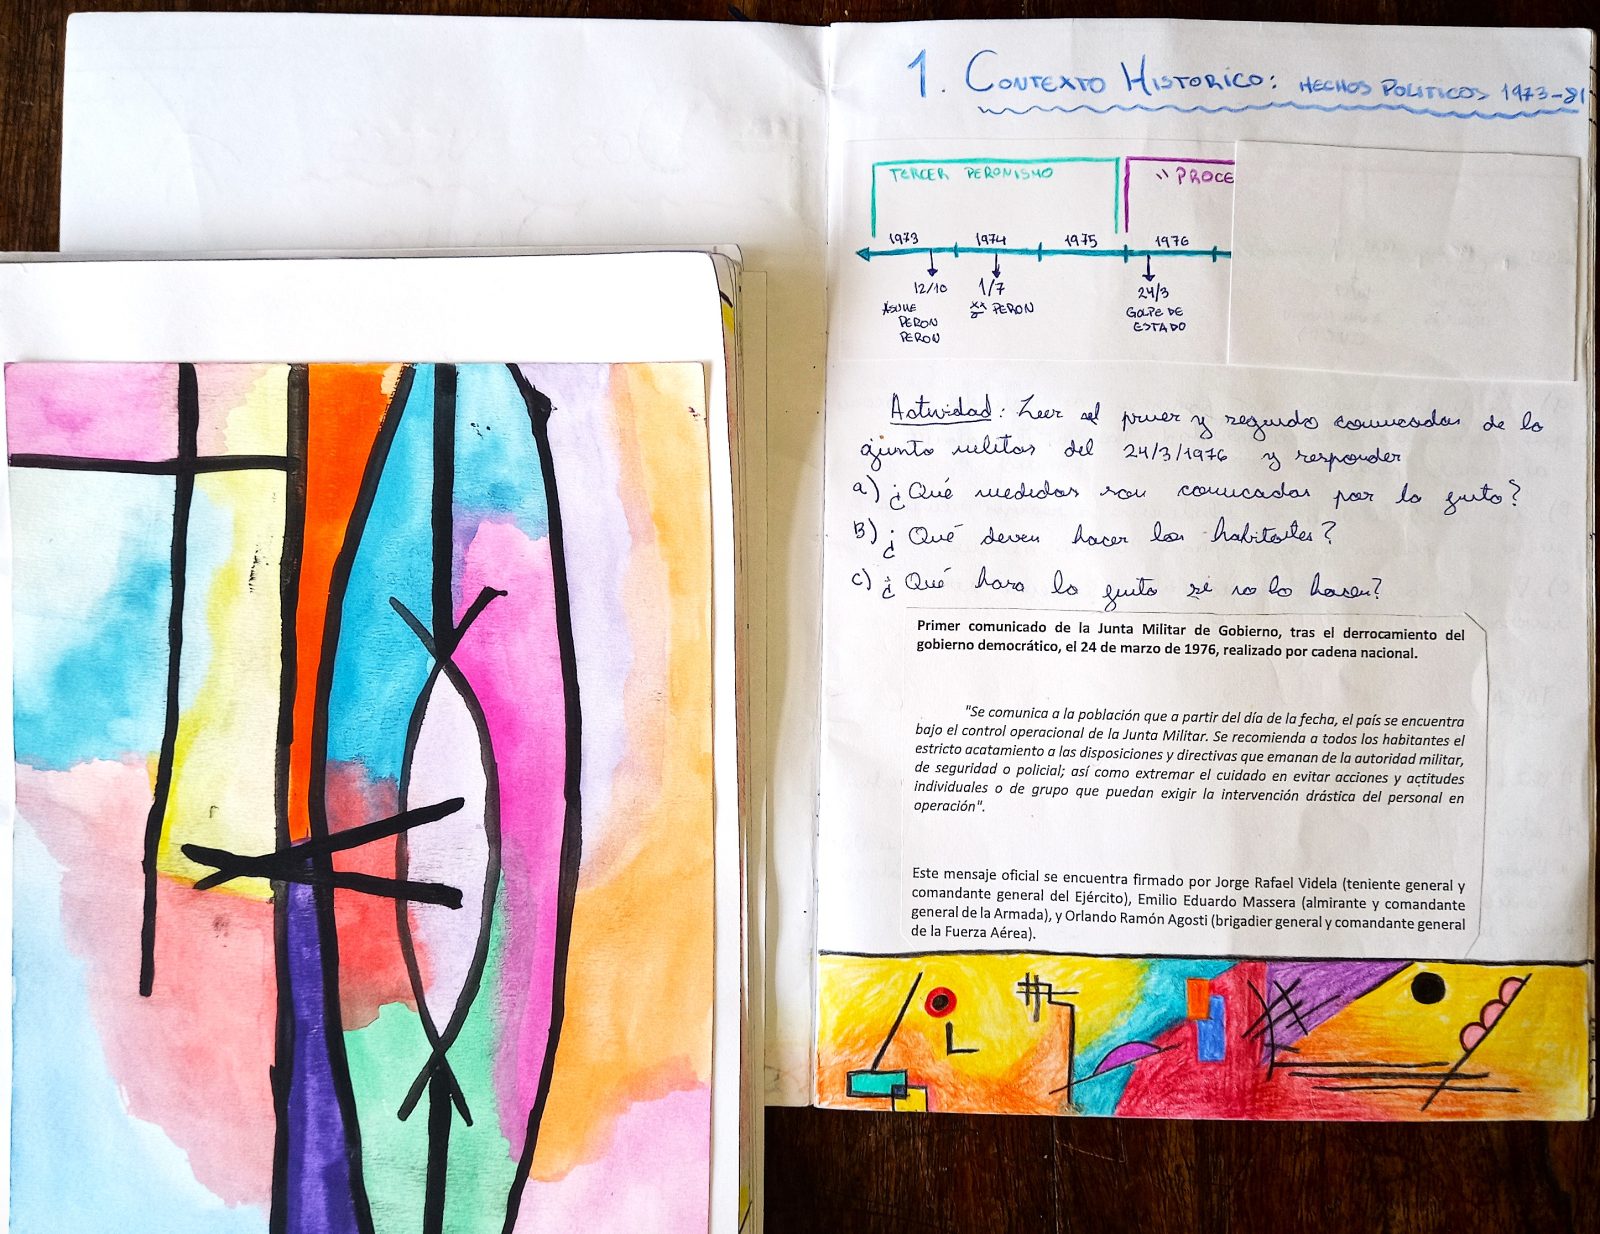 1. CONTEXTO HISTORICO: HECHOS POLITICOS 1973-81
TERCER PERONISMO
"PROCE
1973 1974 1975 1976
12/10 1/7 24/3
ASUME PERON PERON
PERON GOLPE DE
PERON ESTADO
Actividad: Leer el primer y segundo comunicados de la
junta militar del 24/3/1976 y responder
a) ¿Qué medidas son comunicadas por la junta?
B) ¿Qué deven hacer los habitantes?
c) ¿Qué hara la junta si no lo hacen?
Primer comunicado de la Junta Militar de Gobierno, tras el derrocamiento del
gobierno democrático, el 24 de marzo de 1976, realizado por cadena nacional.
"Se comunica a la población que a partir del día de la fecha, el país se encuentra
bajo el control operacional de la Junta Militar. Se recomienda a todos los habitantes el
estricto acatamiento a las disposiciones y directivas que emanan de la autoridad militar,
de seguridad o policial; así como extremar el cuidado en evitar acciones y actitudes
individuales o de grupo que puedan exigir la intervención drástica del personal en
operación".
Este mensaje oficial se encuentra firmado por Jorge Rafael Videla (teniente general y
comandante general del Ejército), Emilio Eduardo Massera (almirante y comandante
general de la Armada), y Orlando Ramón Agosti (brigadier general y comandante general
de la Fuerza Aérea).